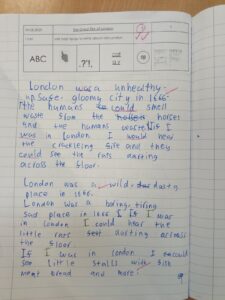 The Great Fire of London
ABC
London was a unhealthy
unsafe, gloomy city in 1666.
The humans could smell
waste from the horses
and the humans. If I
was in London I would hear
the crackling fire and they
could see the rats darting
across the floor.
London was a wild, dusty
place in 1666.
London was a boring, tiring
sad place in 1666 If I was
in London I could hear the
little rats darting across
the floor.
If I was in London I could
see little stalls with fish
meat bread and more!